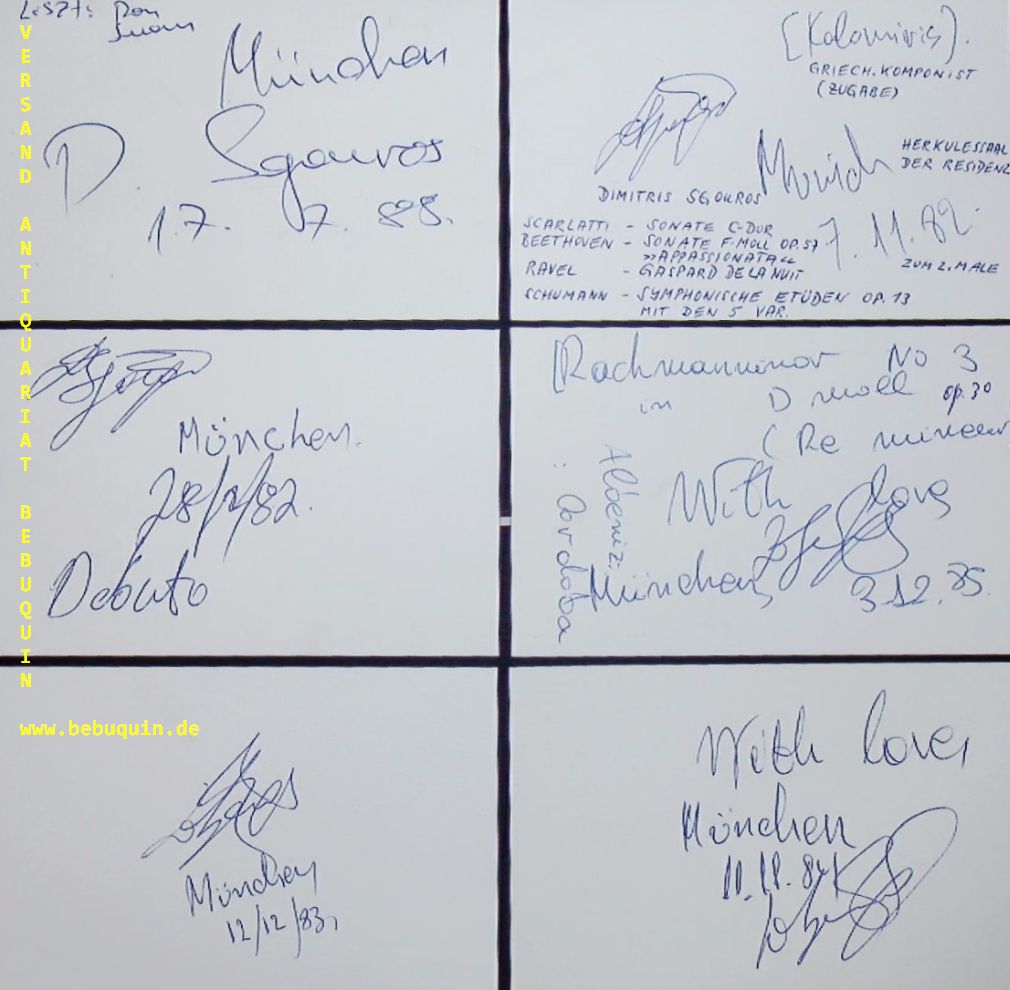 Liszt: Don
Juan
München
D. Sgouros
17. 7. 88.
[Kalomiris].
GRIECH. KOMPONIST
(ZUGABE)
DIMITRIS SGOUROS
Munich
HERKULESSAAL
DER RESIDENZ
7.11.82.
ZUM 2. MALE
SCARLATTI - SONATE C-DUR
BEETHOVEN - SONATE F-MOLL OP. 57
»APPASSIONATA«
RAVEL - GASPARD DE LA NUIT
SCHUMANN - SYMPHONISCHE ETÜDEN OP. 13
MIT DEN 5 VAR.
München.
Debuto
[Rachmanninov No 3
in D moll op. 30
(Re mineur
Albeniz:
Cordoba
With love
München,
3.12.85.
München
12/12/83,
With love,
München
11.11.84
VERSAND ANTIQUARIAT BEBUQUIN
www.bebuquin.de